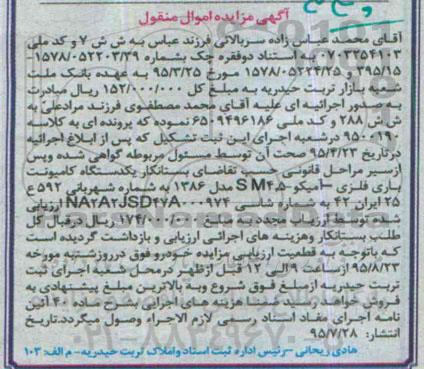 آگهی مزایده اموال منقول
آقای محمد عباس زاده سربالائی فرزند عباس به ش ش ۷ و کد ملی
۰۷۰۳۲۵۴۱۰۳ به استناد دوفقره چک بشماره ۱۵۷۸/۰۵۲۲۰۳/۳۹-
۳۹۵/۱۵ و ۱۵۷۸/۰۵۲۲۴/۲۵ مورخ ۹۵/۳/۲۵ به عهده بانک ملت
شعبه بازار تربت حیدریه به مبلغ کل ۱۵۲/۰۰۰/۰۰۰ ریال مبادرت
به صدور اجرائیه ای علیه آقای محمد مصطفوی فرزند مرادعلی به
ش ش ۲۸۸ و کد ملی ۶۵۰۹۴۹۶۱۸۶ نموده که پرونده ای به کلاسه
۹۵۰۰۱۹۰ درشعبه اجرای این ثبت تشکیل که پس از ابلاغ اجرائیه
درتاریخ ۹۵/۴/۲۳ صحت آن توسط مسئول مربوطه گواهی شده وپس
ازسیر مراحل قانونی حسب تقاضای بستانکار یکدستگاه کامیونت
باری فلزی – آمیکو S M۴.۵ مدل ۱۳۸۶ به شماره شهربانی ۵۹۲ ع
۲۵ ایران ۴۲ به شماره شاسی NA۲A۲JSD۴۷A۰۰۰۹۷۴ ارزیابی
شده توسط ارزیاب مجدد به مبلغ ۱۷۴/۰۰۰/۰۰۰ ریال درقبال کل
طلب بستانکار وهزینه های اجرائی ارزیابی و بازداشت گردیده است
که باتوجه به قطعیت ارزیابی مزایده خودرو فوق درروزشنبه مورخه
۹۵/۸/۲۳ ازساعت ۹ الی ۱۲ قبل ازظهر درمحل شعبه اجرای ثبت
تربت حیدریه ازمبلغ فوق شروع وبه بالاترین مبلغ پیشنهادی به
فروش خواهد رسید ضمنا هزینه های اجرایی بشرح ماده ۴۰ آئین
نامه اجرای مفاد اسناد رسمی لازم الاجراء وصول میگردد.تاریخ
انتشار: ۹۵/۷/۲۸
هادی ریحانی –رئیس اداره ثبت اسناد واملاک تربت حیدریه– م الف: ۱۰۳
۰۲۱-۸۸۳۴۹۶۷۰